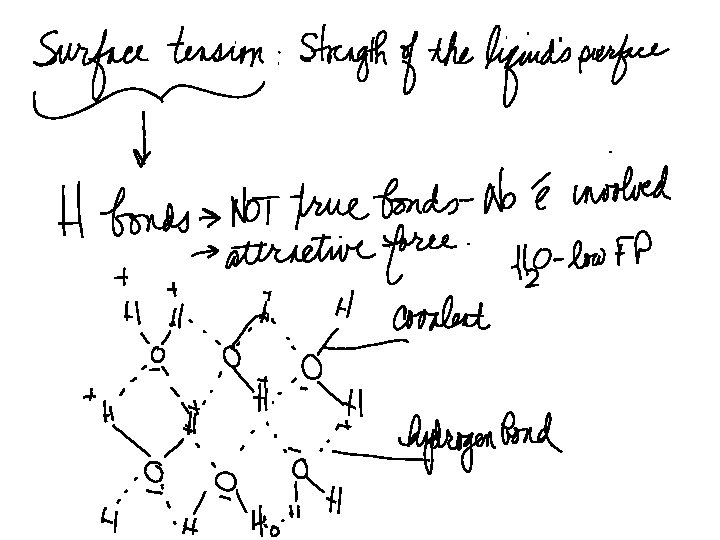 Surface tension: Strength of the liquid's surface
H bonds → NOT true bonds - No ē involved
→ attractive force.
H2O - low FP
+ +
H H H H
covalent
O O O
+ H H H H
hydrogen bond
O O O
H H H H H